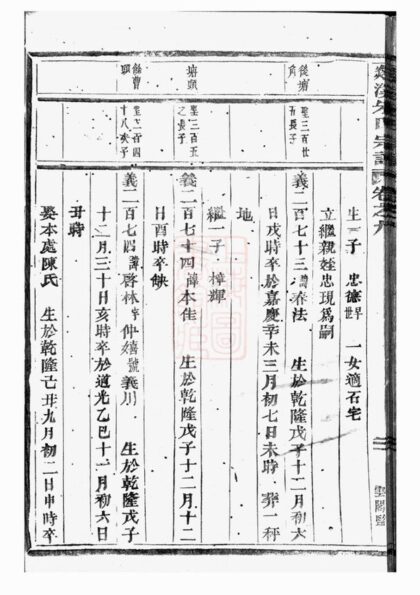 宗譜 卷之九
生一子 忠德早世 一女適石宅
立繼親姪忠現爲嗣
後塘角
聖三百廿五長子
義二百七十三諱春法 生於乾隆戊子十二月初六
日戌時卒於嘉慶辛未三月初七日未時 葬一秤
地
繼一子 樟輝
塘頭
聖三百五之長子
義二百七十四諱本佳 生於乾隆戊子十二月十二
日酉時卒缺
聖二百四十八次子
義二百七四諱啓林字仲嬉號義川 生於乾隆戊子
十二月三十日亥時卒於道光乙巳十一月初六日
丑時
娶本處陳氏 生於乾隆己丑九月初二日申時卒